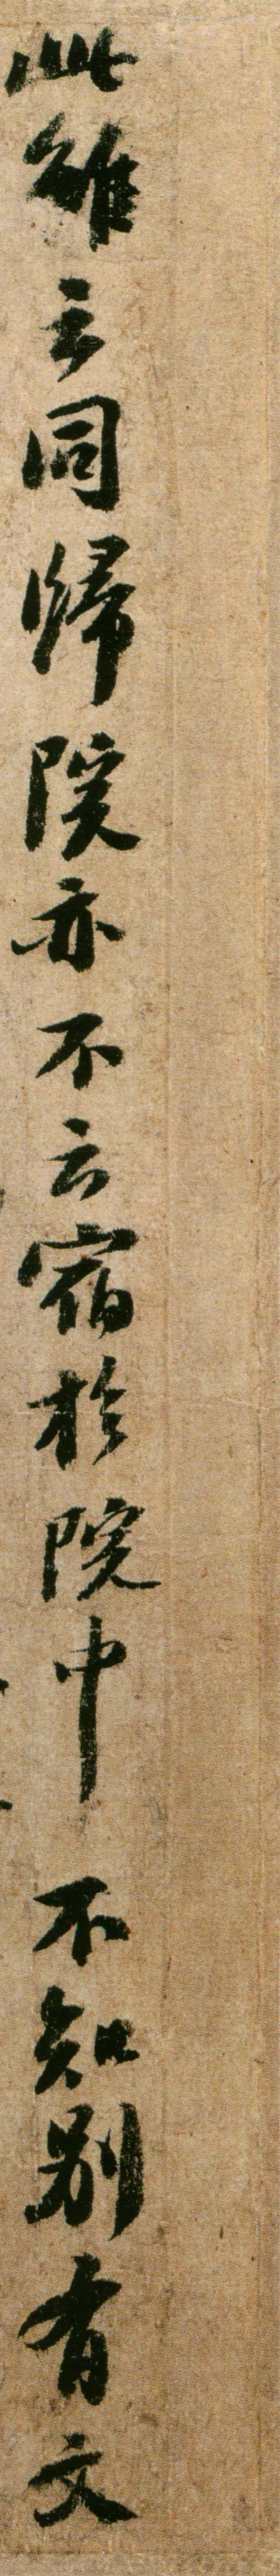 此雖云同歸院亦不云宿於院中不知別有文